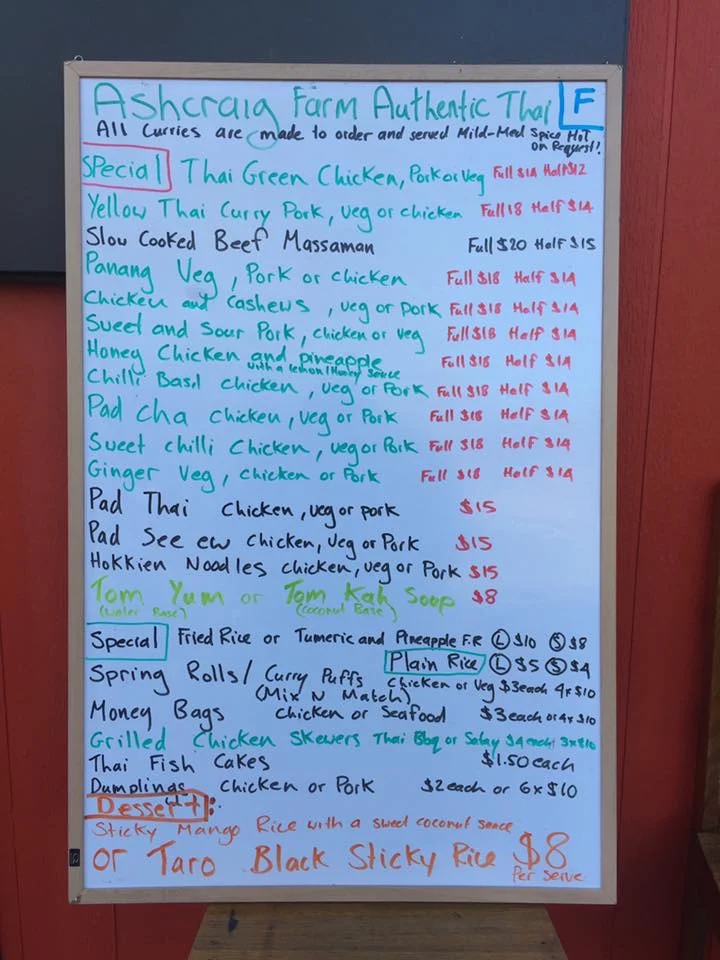 Ashcraig Farm Authentic Thai F
All Curries are made to order and served Mild-Med Spice Hot
on Request!
Special Thai Green Chicken, Pork or Veg Full $14 Half $12
Yellow Thai Curry Pork, veg or chicken Full 18 Half $14
Slow Cooked Beef Massaman Full $20 Half $15
Panang Veg, Pork or chicken Full $18 Half $14
Chicken and Cashews, veg or pork Full $18 Half $14
Sweet and Sour Pork, chicken or veg Full $18 Half $14
Honey Chicken and pineapple Full $18 Half $14
with a lemon/Honey Sauce
Chilli Basil chicken, veg or Pork Full $18 Half $14
Pad cha chicken, veg or Pork Full $18 Half $14
Sweet chilli Chicken, veg or Pork Full $18 Half $14
Ginger Veg, chicken or Pork Full $18 Half $14
Pad Thai chicken, veg or pork $15
Pad See ew chicken, veg or Pork $15
Hokkien Noodles chicken, veg or Pork $15
Tom Yum or Tom Kah Soup $8
(Water Base) (Coconut Base)
Special Fried Rice or Tumeric and Pineapple F.R (L) $10 (S) $8
Plain Rice (L) $5 (S) $4
Spring Rolls/ Curry Puffs Chicken or Veg $3 each 4x$10
(Mix N Match)
Money Bags chicken or Seafood $3 each or 4x $10
Grilled Chicken Skewers Thai Bbq or Satay $4 each 3x$10
Thai Fish Cakes $1.50 each
Dumplings chicken or Pork $2 each or 6x$10
Dessert:
Sticky Mango Rice with a sweet coconut sauce
or Taro Black Sticky Rice $8
Per serve